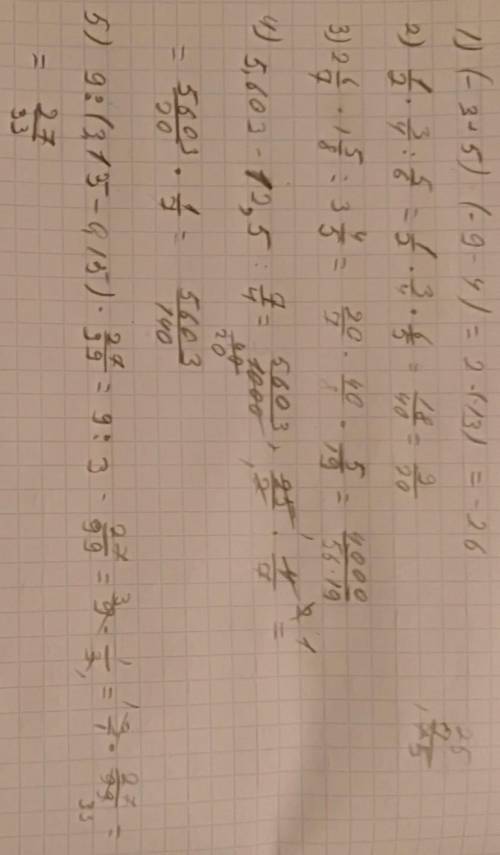 1) (-3+5) (-9-4) = 2·(-13) = -26
2) 1/2 · 3/4 : 5/6 = 1/2 · 3/4 · 6/5 = 18/40 = 9/20
3) 2 6/7 · 1 5/8 : 3 4/5 = 20/7 · 40/8 · 5/19 = 4000/56·19
4) 5,603 · 12,5 : 7/4 = 5603/1000 · 25/2 · 4/7 =
= 5603/20 · 1/7 = 5603/140
5) 9:(3,15-0,15) · 27/99 = 9:3 · 27/99 = 9 · 1/3 = 9/1 · 27/99 =
= 27/33
25